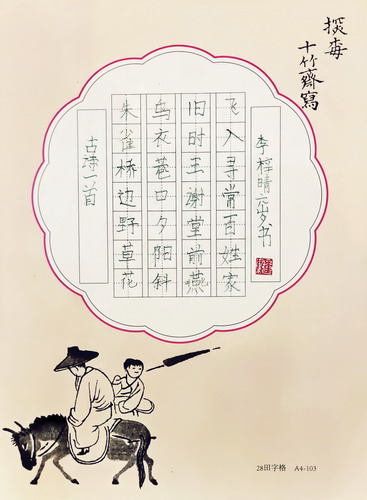 探梅
十竹齋寫
古诗一首
朱雀桥边野草花
乌衣巷口夕阳斜
旧时王谢堂前燕
飞入寻常百姓家
李梓晴六岁书
28田字格 A4-103